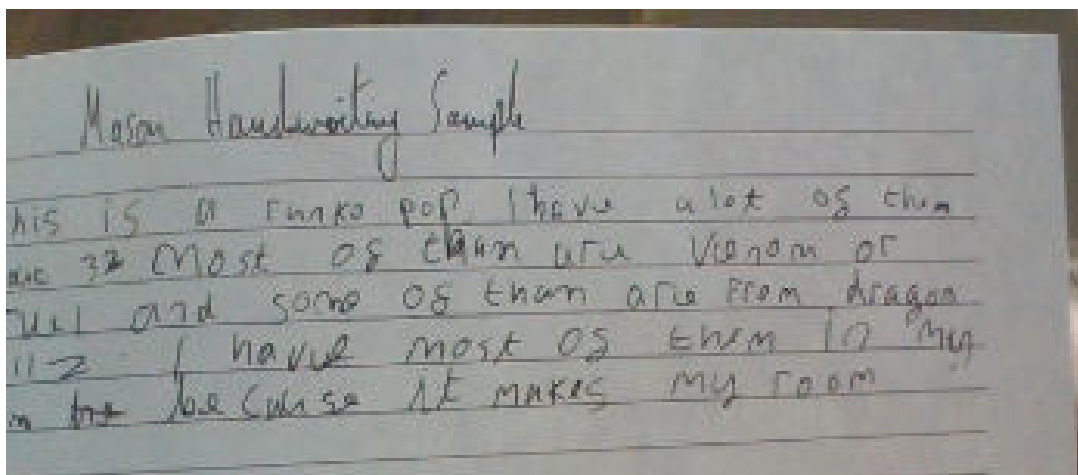 Mason Handwriting Sample
his is a Funko pop I have a lot of them
32 Most of tham are Vienom or
and some of tham are From dragon
ll z I have most of them in my
be cause it makes my room